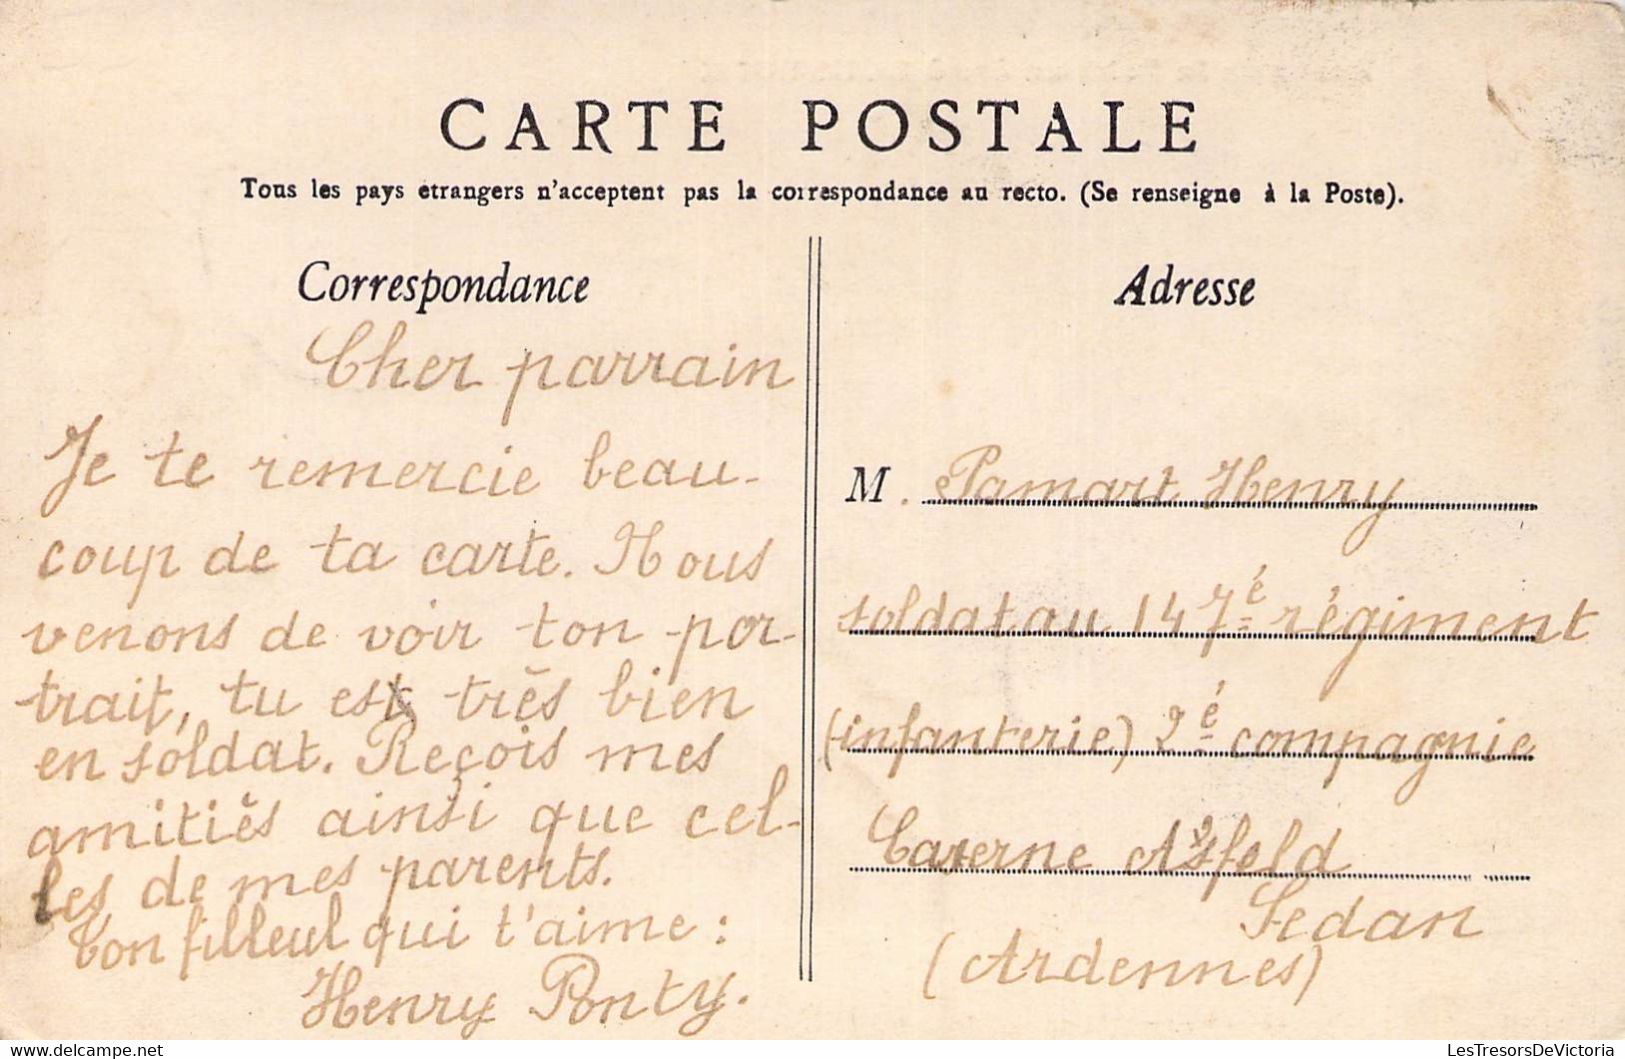 CARTE POSTALE
Tous les pays etrangers n'acceptent pas la correspondance au recto. (Se renseigne à la Poste).
Correspondance
Cher parrain
Je te remercie beau-
coup de ta carte. Nous
venons de voir ton por-
trait, tu es très bien
en soldat. Reçois mes
amitiés ainsi que cel-
les de mes parents.
Ton filleul qui t'aime :
Henry Ponty.
Adresse
M. Pamart Henry
soldat au 147é régiment
(infanterie) 2é compagnie
Caserne Asfeld
Sedan
(Ardennes)
delcampe.net
LesTresorsDeVictoria